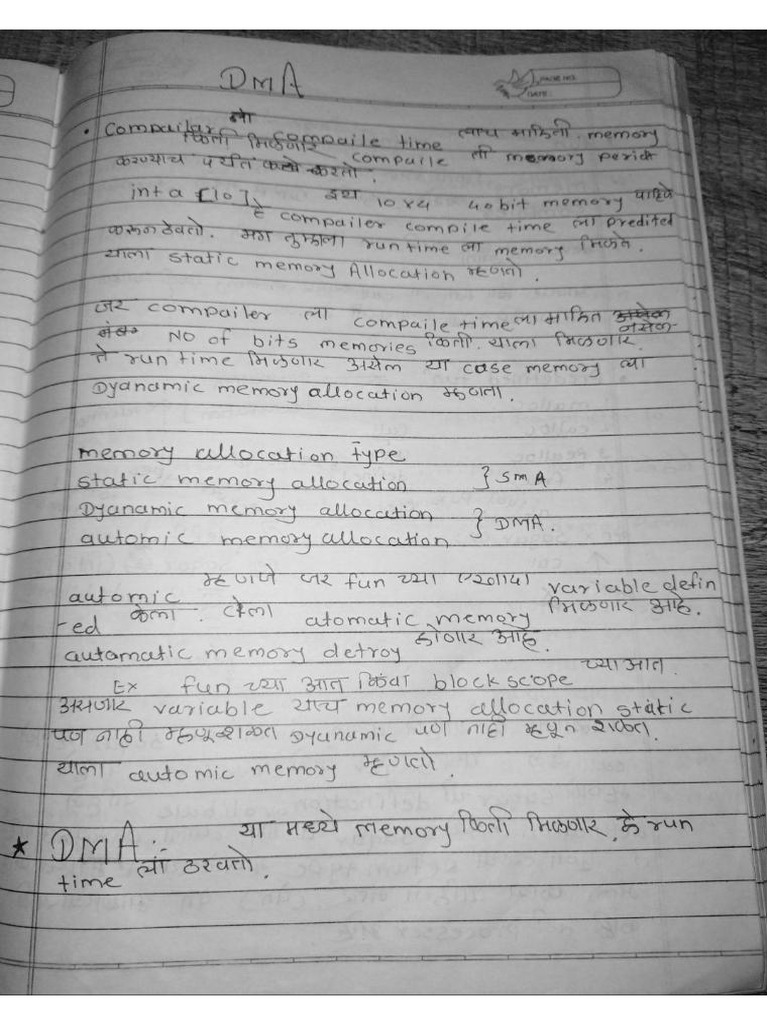 DMA
PAGE NO.
DATE:
• Compailar ला compaile time त्याच माहिती. memory
किती मिळणार compaile ती memory
करण्याच पर्यंत करतो.
int a [10] इथ 10 x 4 40 bit memory पाहिजे
हे compailer compile time ला predited
करून ठेवतो. मग तुम्हाला runtime ला memory मिळते.
याला static memory Allocation म्हणतो.
जर compailer ला compaile time ला माहित नसेल
NO of bits memories किती. याला मिळणार.
ते run time मिळणार असेल या case memory ला
Dyanamic memory allocation म्हणता.
memory allocation type
static memory allocation } SMA
Dyanamic memory allocation } DMA.
automic memory allocation
automic म्हणजे जर fun च्या variable defin
-ed केला. त्याला atomatic memory मिळणार आहे.
automatic memory detroy होणार आहे.
Ex fun च्या आत किंवा block scope च्या आत.
असणार variable याच memory allocation static
पण नाही म्हणू शकत Dyanamic पण नाही म्हणून शकत.
याला automic memory म्हणतो.
* DMA:- या मध्ये memory किती मिळणार, हे run
time ला ठरवतो.